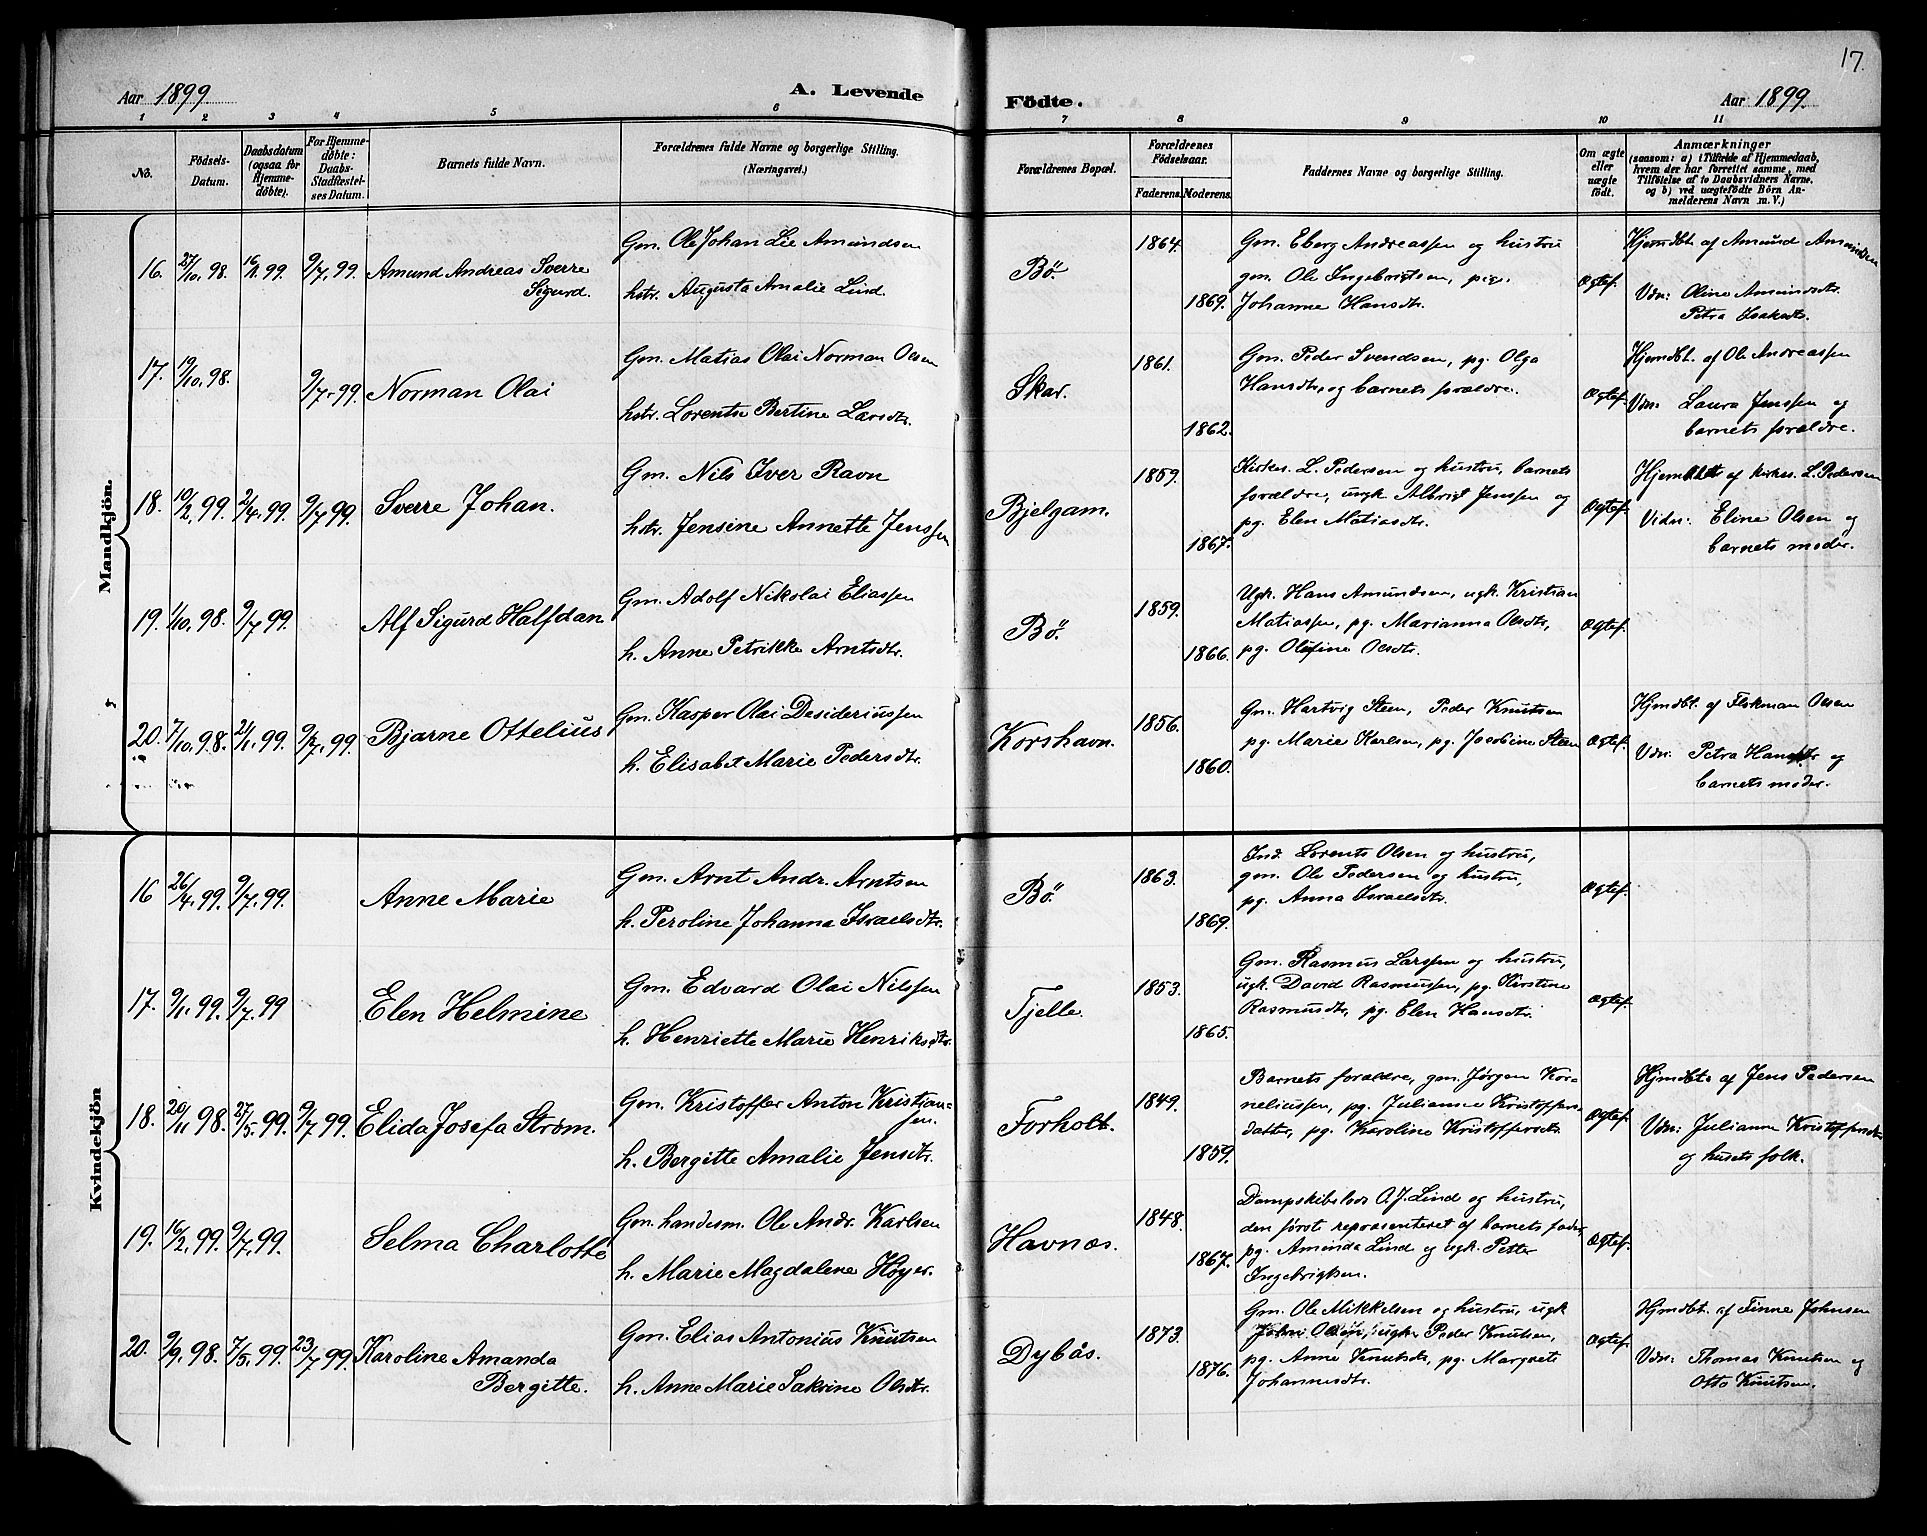 17.
Aar 1899.
A. Levende
Födte.
Aar 1899.
1 2 3 4 5 6 7 8 9 10 11
No.
Födsels-
Datum.
Daabsdatum
(ogsaa for
Hjemme-
döbte).
For Hjemme-
döbte:
Daabs-
Stadfæstel-
ses Datum.
Barnets fulde Navn.
Forældrenes fulde Navne og borgerlige Stilling.
(Næringsvei.)
Forældrenes Bopæl.
Forældrenes
Födselsaar.
Faderens.
Moderens.
Faddernes Navne og borgerlige Stilling.
Om ægte
eller
uægte
födt.
Anmærkninger
(saasom: a) i Tilfælde af Hjemmedaab,
hvem der har forrettet samme, med
Tilföielse af to Daabsvidners Navne,
og b) ved uægtefödte Börn An-
melderens Navn m. V.)
Mandkjön.
16. 27/10. 98. 16/1. 99. 9/7. 99. Amund Andreas Sverre
Sigurd.
Gm. Ole Johan Lie Amundsen
hstr. Augusta Amalie Lind.
Bø.
1864.
1869.
Gm. Eberg Andreassen og hustru
gm. Ole Ingebrigtsen, pige.
Johanne Hansdtr.
Ægtef.
Hjemdbt. af Amund Amundsen
Vdn: Oline Amundsdtr.
Petra Isaksdtr.
17. 19/10. 98. 9/7. 99. Norman Olai
Gm. Matias Olai Norman Olsen
hstr. Lorentse Bertine Larsdtr.
Skar.
1861.
1862.
Gm. Peder Svendsen, pg. Olga
Hansdtr, og barnets forældre.
Ægtef.
Hjemdbt. af Ole Andreassen
Vdn: Laura Jenssen og
barnets forældre.
18. 10/2. 99. 2/4. 99. 9/7 99. Sverre Johan.
Gm. Nils Iver Ravn
hstr. Jensine Annette Jenssen
Bjelgam.
1859.
1867.
Kirkes. L. Pedersen og hustru, barnets
forældre, ungk Albrigt Jenssen og
pg. Elen Matiasdtr.
Ægtef.
Hjemdbt af kirkes. L. Pedersen
Vidn: Eline Olsen og
barnets moder.
19. 1/10. 98. 9/7 99. Alf Sigurd Halfdan
Gm. Adolf Nikolai Eliassen
h. Anne Petrikke Arntsdtr.
Bø.
1859.
1866.
Ugk. Hans Amundsen, ugk. Kristian
Matiassen, pg. Marianna Olsdtr,
pg. Olufine Olsdtr.
Ægtef.
20. 7/10. 98. 2/1. 99. 9/7. 99. Bjarne Ottelius
Gm. Kasper Olai Desideriussen
h. Elisabet Marie Pedersdtr.
Korshavn.
1856.
1860.
Gm. Hartvig Steen, Peder Knutsen
pg. Marie Karlsen, pg. Jacobine Steen
Ægtef.
Hjmdbt. af Flokman Olsen
Vdn: Petra Hansdtr og
barnets moder.
Kvindekjön
16 26/4. 99. 9/7. 99. Anne Marie
Gm. Arnt Andr. Arntsen
h. Peroline Johanna Israelsdtr.
Bø.
1863.
1869.
Ind. Lorents Olsen og hustru,
gm. Ole Pedersen og hustru,
pg. Anna Israelsdtr.
Ægtef.
17. 9/1. 99. 9/7. 99 Elen Helmine
Gm. Edvard Olai Nilssen
h. Henriette Marie Henriksdtr.
Tjelle.
1853.
1865.
Gm. Rasmus Larssen og hustru,
ugk. David Rasmussen, pg. Kirstine
Rasmusdtr, pg. Elen Hansdtr.
Ægtef.
18. 20/11 98. 27/5. 99. 9/7 99. Elida Josefa Strøm.
Gm. Kristoffer Anton Kristian-
sen.
h. Bergitte Amalie Jensdtr.
Forholt.
1849.
1859.
Barnets forældre, gm. Jørgen Kor-
neliussen, pg. Julianne Kristoffers-
datter, pg. Karoline Kristoffersdtr.
Ægtef.
Hjmdbt. af Jens Pedersen
Vdn: Julianne Kristoffersdtr
og husets folk.
19. 16/2. 99. 9/7. 99. Selma Charlotte
Gm. handesm. Ole Andr. Karlsen
h. Marie Magdalene Høyer.
Havnæs.
1848.
1867.
Dampskibslods O. J. Lind og hustru,
den første repræsenteret af barnets fader,
pg. Amanda Lind og ugk. Petter
Ingebrigtsen.
Ægtef.
20. 9/9. 98. 7/5. 99. 23/7 99. Karoline Amanda
Bergitte.
Gm. Elias Antonius Knutsen
h. Anne Marie Sakrine Olsdtr.
Dybås.
1873.
1876.
Gm. Ole Mikkelsen og hustru, ugk
ugk. Peder Knutsen,
pg. Anne Knutsdtr, pg. Margrete
Johannesdtr.
Ægtef.
Hjmdbt. af Finne Johnsen
Vdn: Thomas Knutsen og
Otto Knutsen.